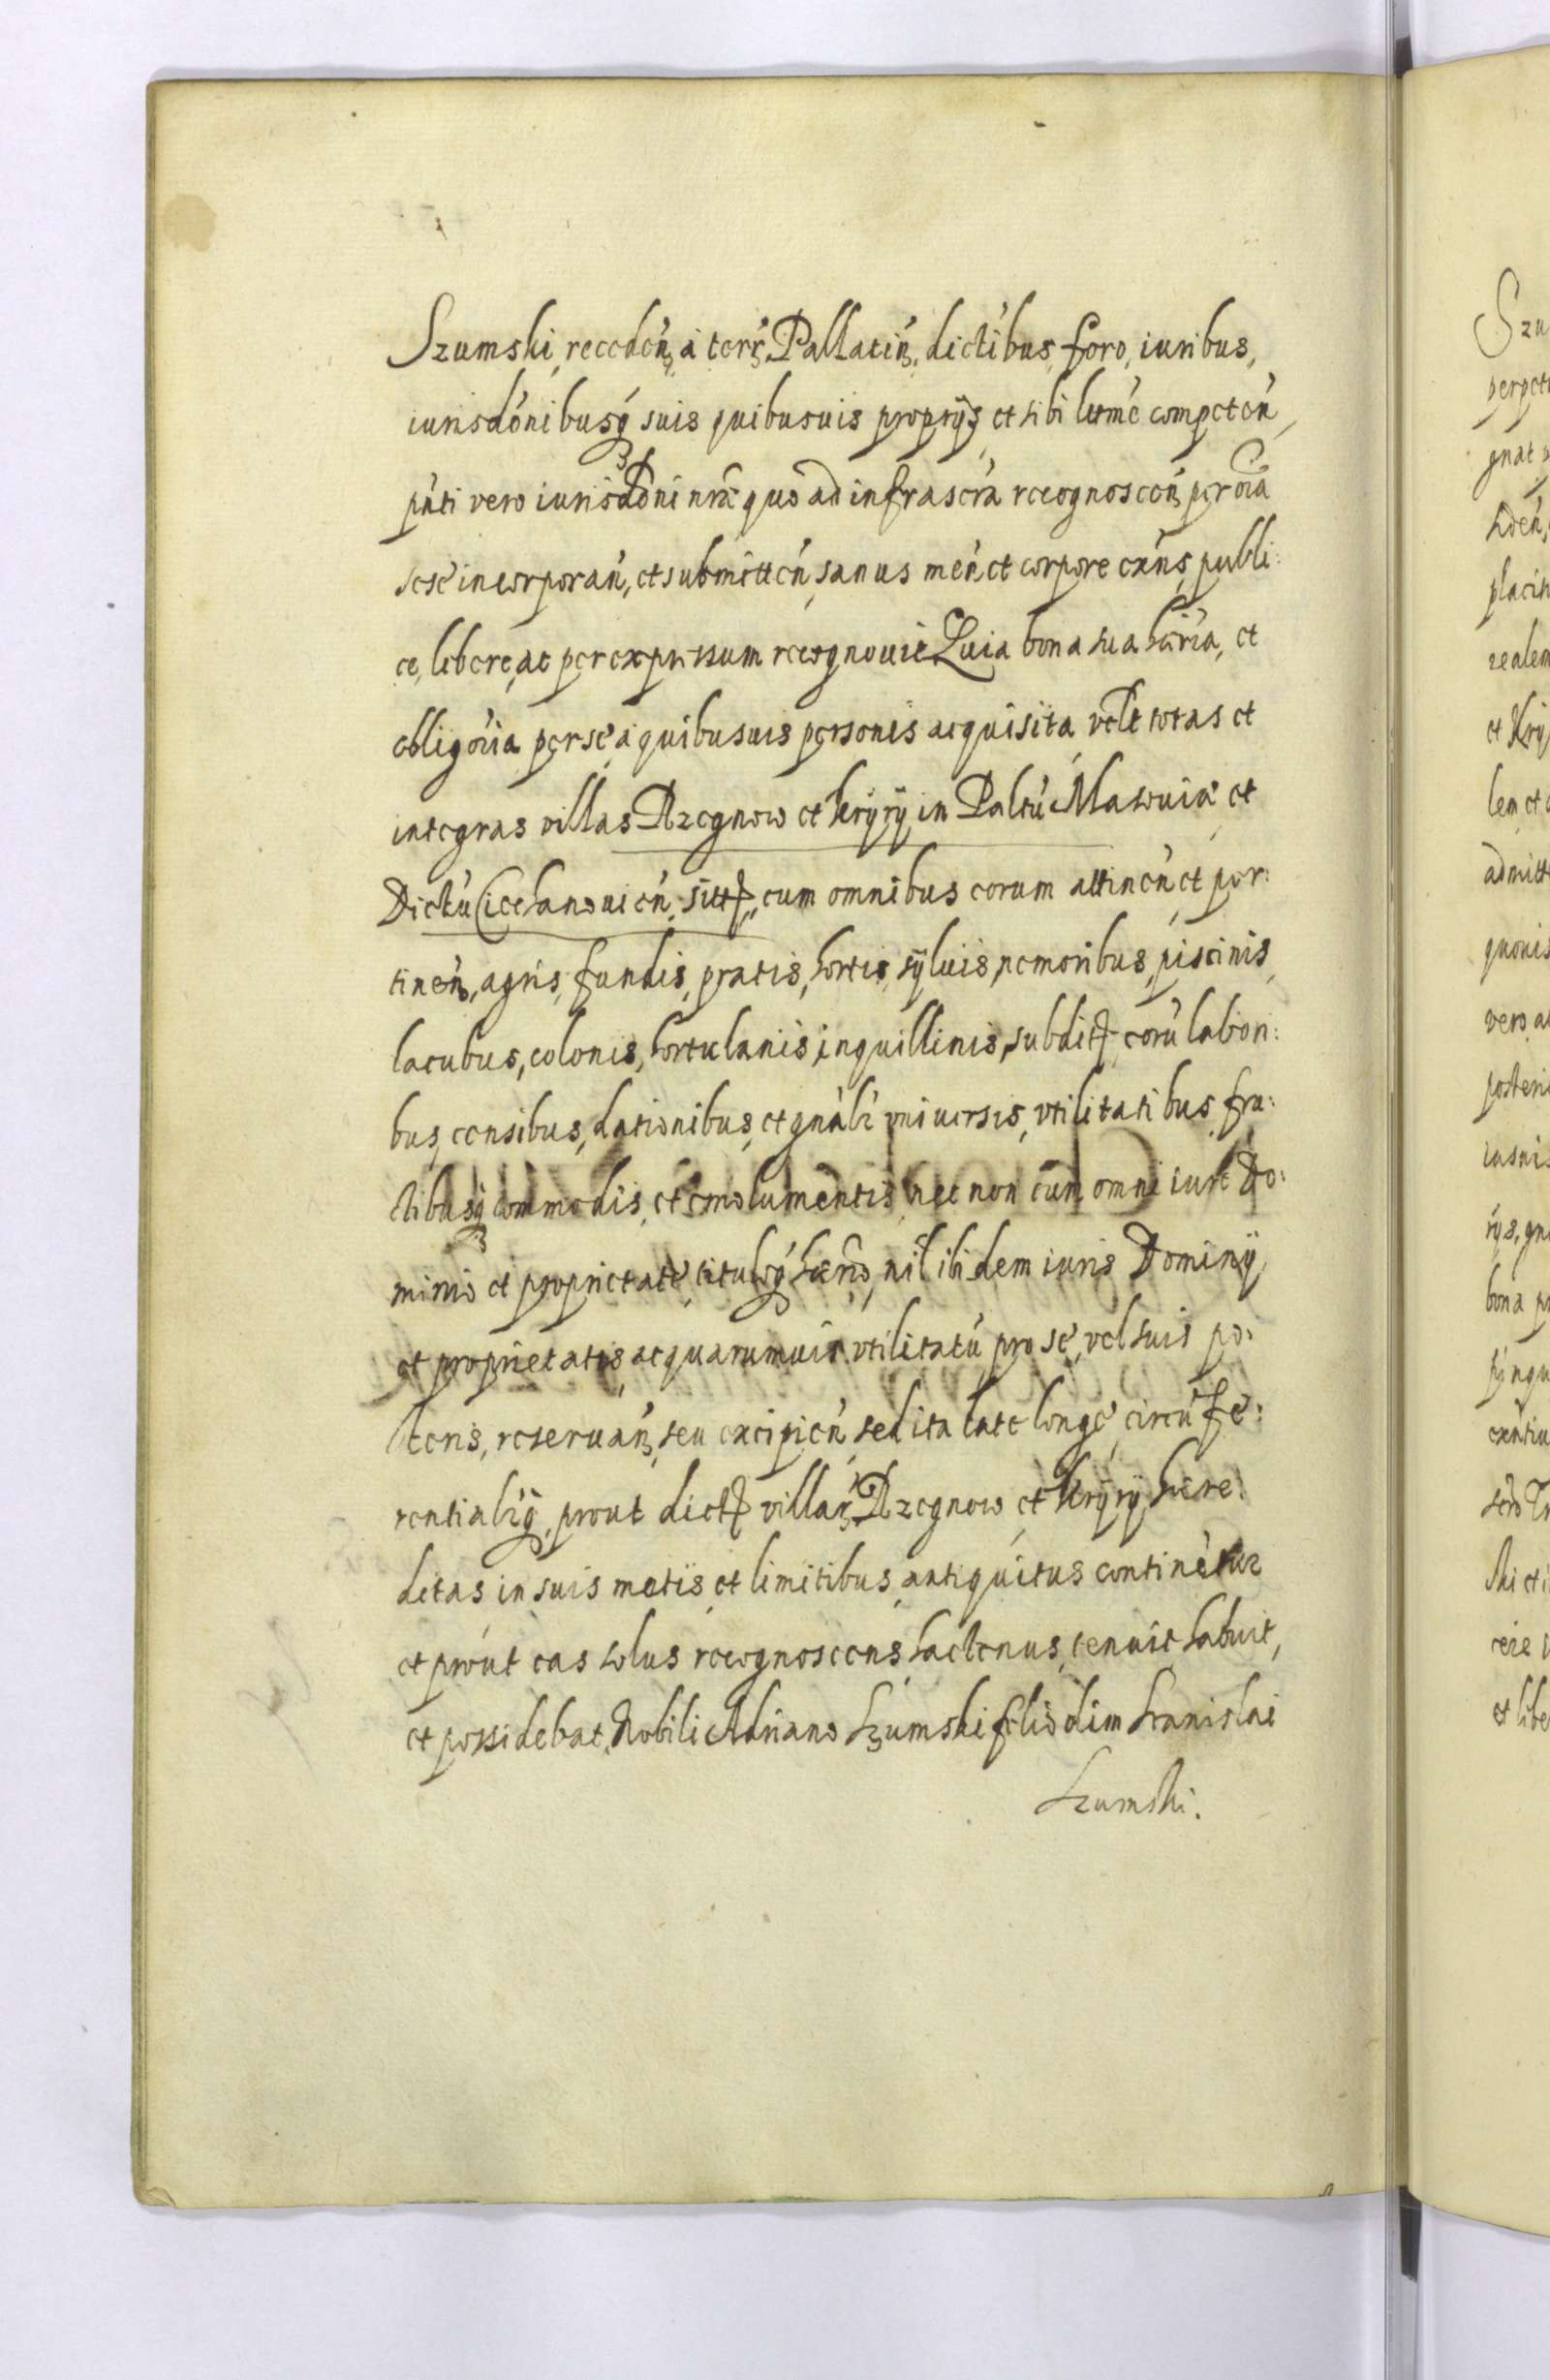 Szumski, recedeń, á terŕ, Pallatiń, dictibus, foro, iuribus,
iurisdónibusq́ suis quibusuis proprÿs et sibi lttmé competeń,
pńti vero iurisdóni nrǽ quo ad infrascŕa recognosceń per oĩa
sesé incorporań, et submitteń, sanus meń, et corpore exńs, publi:
ce, libere, ac per expressum recognouit Quia bona sua hŕia, et
obligória per sé á quibusuis personis acquisita vdlt totas et
integras villas Rzegnow et Kryry in Paltú Masouiæ et
Dictú Ciechanouień, sitt, cum omnibus eorum attineń, et per:
tineń, agris, fundis, pratis, hortis, syluis, nemoribus, piscinis,
lacubus, colonis, hortulanis, inquillinis, subdit, eorú labori:
bus, censibus, dationibus, et gnálr vniuersis, vtilitatibus, fru:
ctibusq́ commodis, et emolumentis, nec non cum omni iure Do:
minio et proprietaté, tituloq́ hærio, nil ibidem iuris Dominÿ,
et proprietatis, ac quarumuis vtilitatú, pro sé, vel suis po:
steris, reseruań, seu excipień, sed ita late longé, circú fe:
rentialrq́, prout dict villaŕ, Rzegnow et Kryry hære:
detas in suis metis et limitibus antiquitus continétur
et prout eas solus recognoscens hactenus, tenuit habuit,
et possidebat, Nobili Adriano Szumski filio olim Stanislai
Szumski.
Szu
perpet
gnat
placit
realem
et Kry
lem et
admitt
quouis
vero a
posteri
bona
et libe